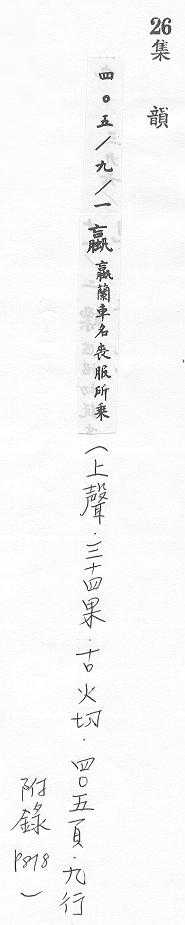 26集韻
四〇五/九/一 𦣄 𦣄蘭車名喪服所乘(上聲.三十四果.古火切.四〇五頁.九行
附錄P878)